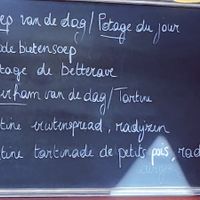 ep van de dag / Potage du jour
ode bietensoep
tage de betterave
erham van de dag / Tartine
tine erwtenspread, radijzen
tine tartinade de petits pois, rad